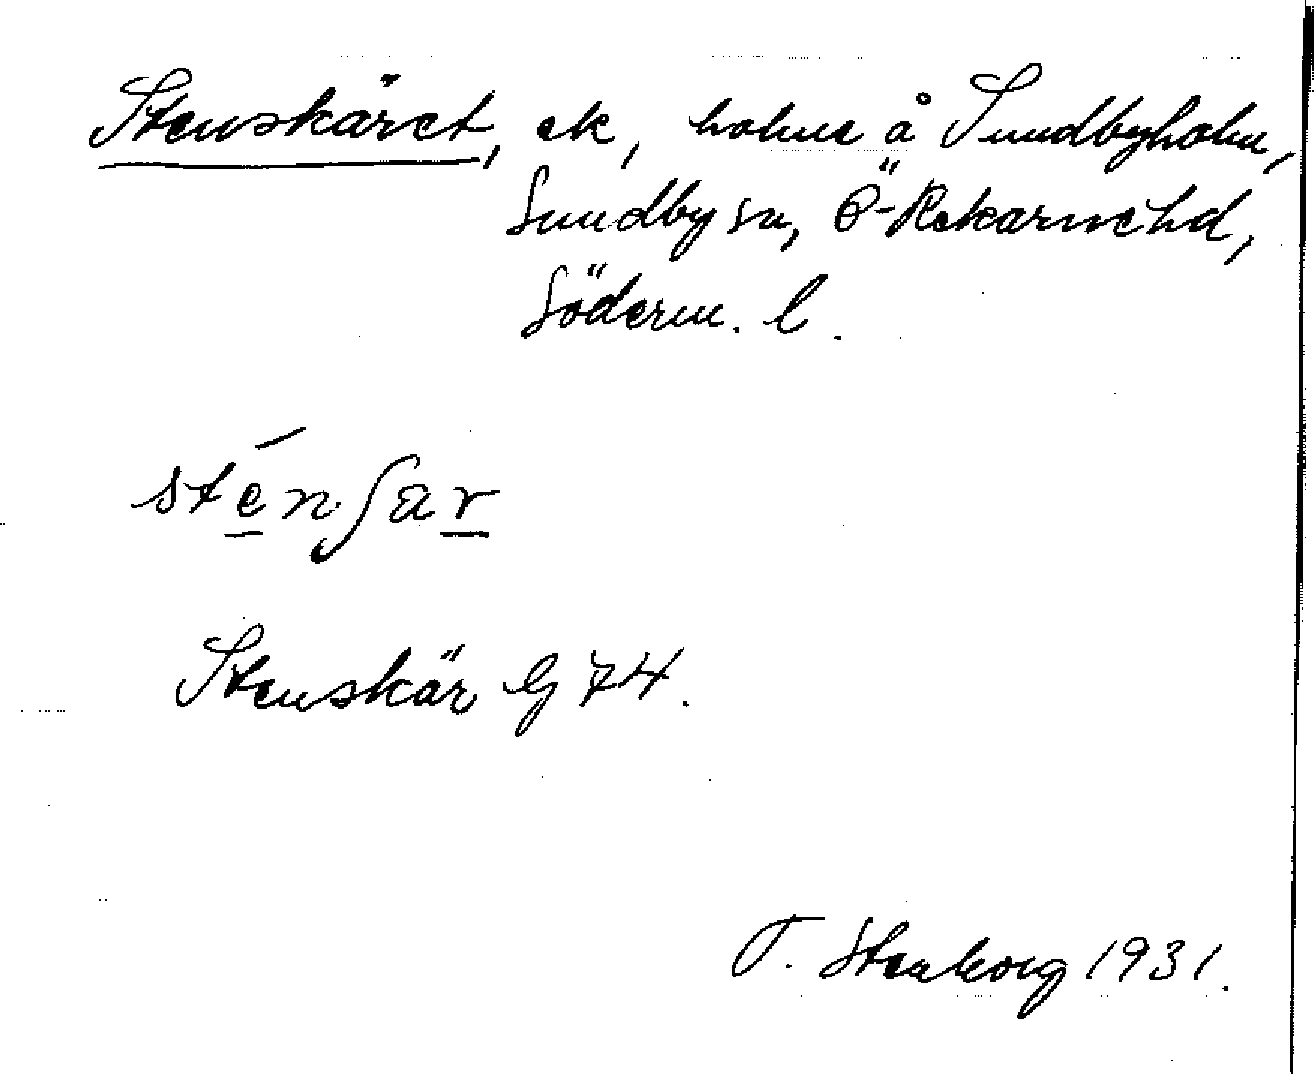 Stenskäret, ek, holme å Sundbyholm,
Sundby sn, Ö-Rekarne hd,
Söderm. l.
sténʃär
Stenskär G 74.
T. Stenborg 1931.